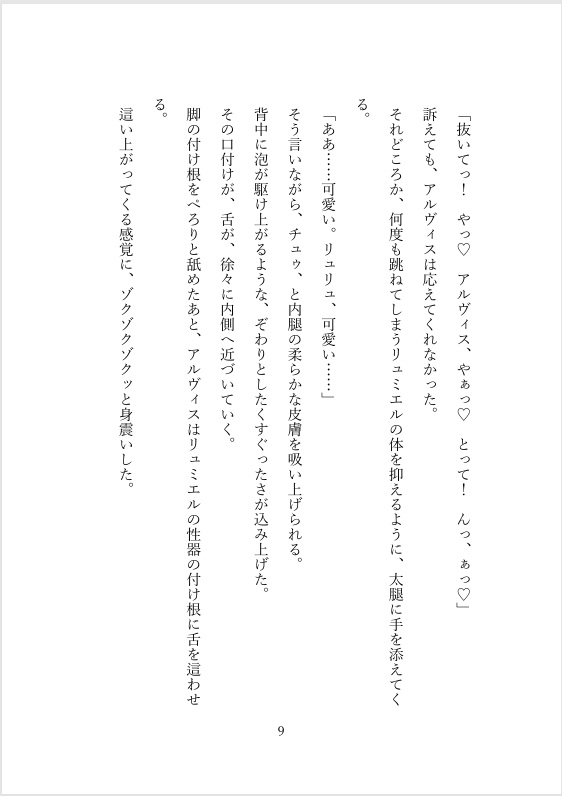 「抜いてっ！　やっ♡　アルヴィス、やぁっ♡　とって！　んっ、ぁっ♡」
訴えても、アルヴィスは応えてくれなかった。
それどころか、何度も跳ねてしまうリュミエルの体を抑えるように、太腿に手を添えてく
る。
「ああ……可愛い。リュリュ、可愛い……」
そう言いながら、チュゥ、と内腿の柔らかな皮膚を吸い上げられる。
背中に泡が駆け上がるような、ぞわりとしたくすぐったさが込み上げた。
その口付けが、舌が、徐々に内側へ近づいていく。
脚の付け根をぺろりと舐めたあと、アルヴィスはリュミエルの性器の付け根に舌を這わせ
る。
這い上がってくる感覚に、ゾクゾクゾクッと身震いした。
9